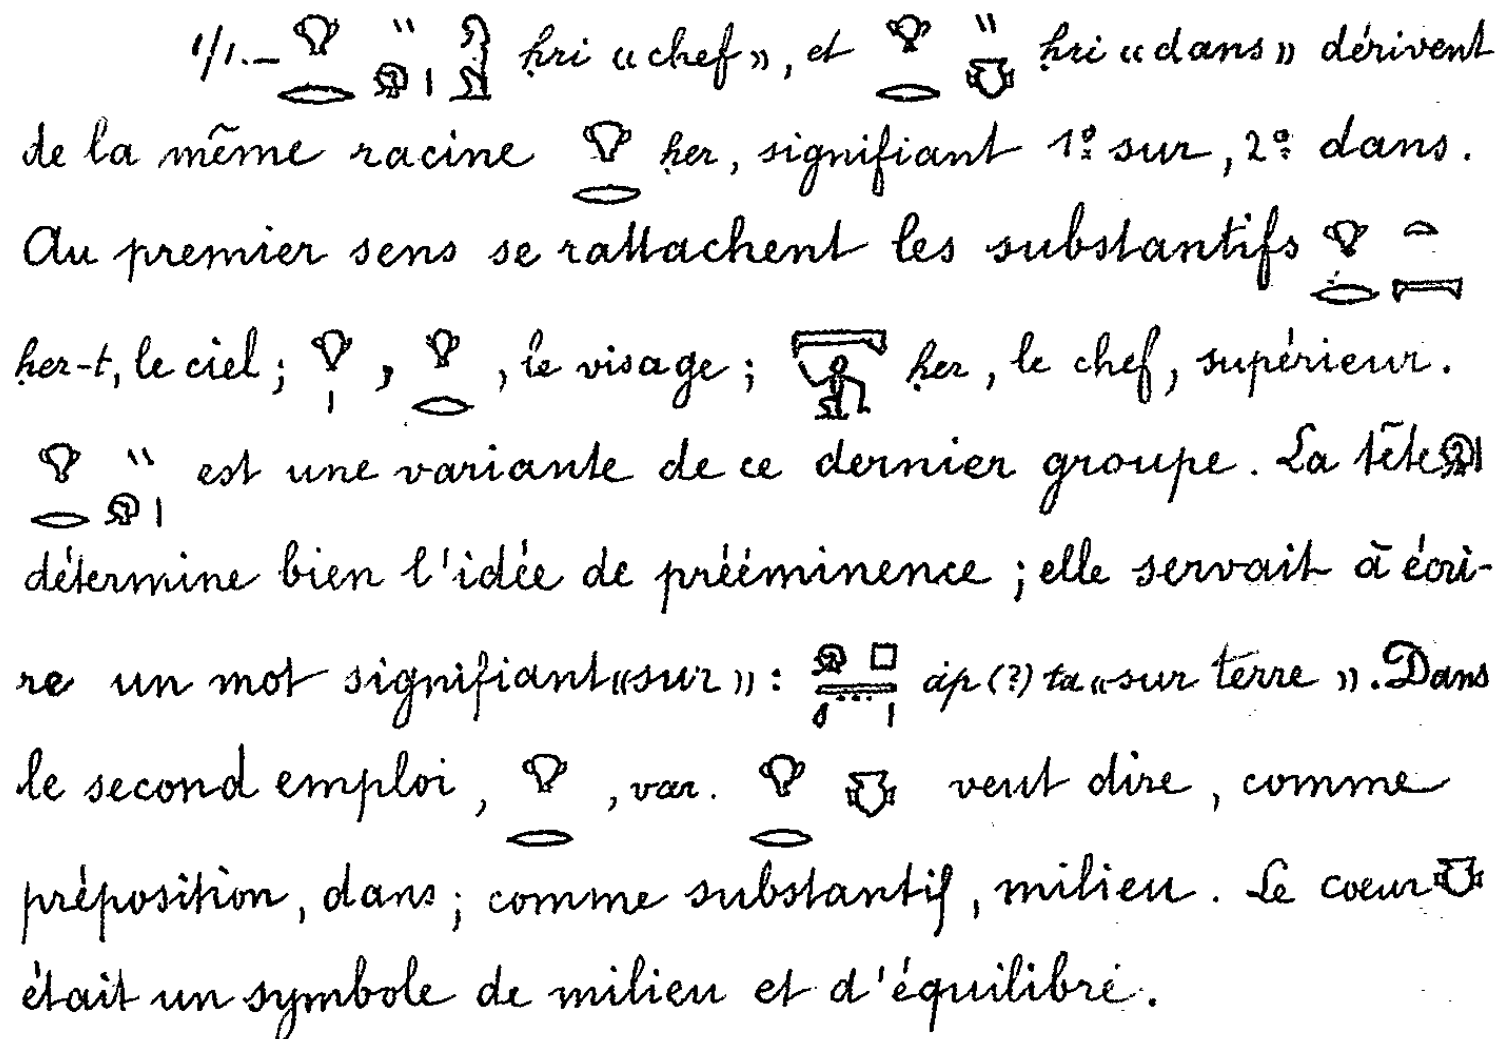 1/1.— 𓁷𓂋 \\ 𓁶𓏤𓀀 ḥri «chef», et 𓁷𓂋 \\ 𓄣 ḥri «dans» dérivent
de la même racine 𓁷𓂋 ḥer, signifiant 1º sur, 2º dans.
Au premier sens se rattachent les substantifs 𓁷𓂋𓏏𓇯
ḥer-t, le ciel; 𓁷𓏤, 𓁷𓂋, le visage; ḥer, le chef, supérieur.
𓁷𓂋 \\ 𓁶𓏤 est une variante de ce dernier groupe. La tête 𓁶𓏤
détermine bien l'idée de prééminence; elle servait à écri-
re un mot signifiant «sur»: 𓁶𓊪𓇾𓏤 áp(?) ta «sur terre». Dans
le second emploi, 𓁷𓂋, var. 𓁷𓂋𓄣 veut dire, comme
préposition, dans; comme substantif, milieu. Le coeur 𓄣
était un symbole de milieu et d'équilibre.